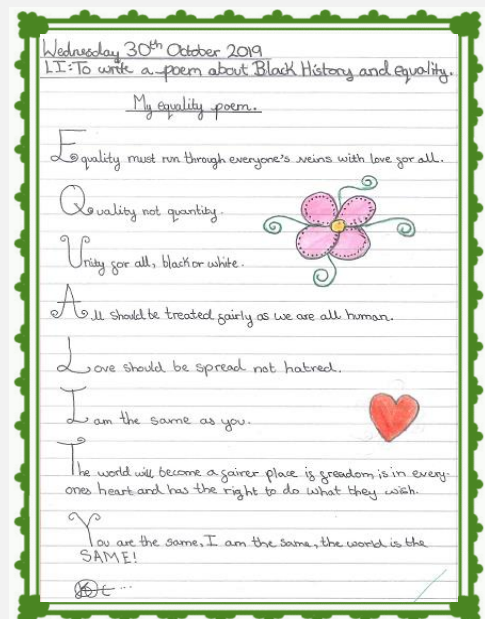 Wednesday 30th October 2019
LI: To write a poem about Black History and equality.
My equality poem.
Equality must run through everyone's veins with love for all.
Quality not quantity.
Unity for all, black or white.
All should be treated fairly as we are all human.
Love should be spread not hatred.
I am the same as you.
The world will become a fairer place if freadom is in every-
ones heart and has the right to do what they wish.
You are the same, I am the same, the world is the
SAME!